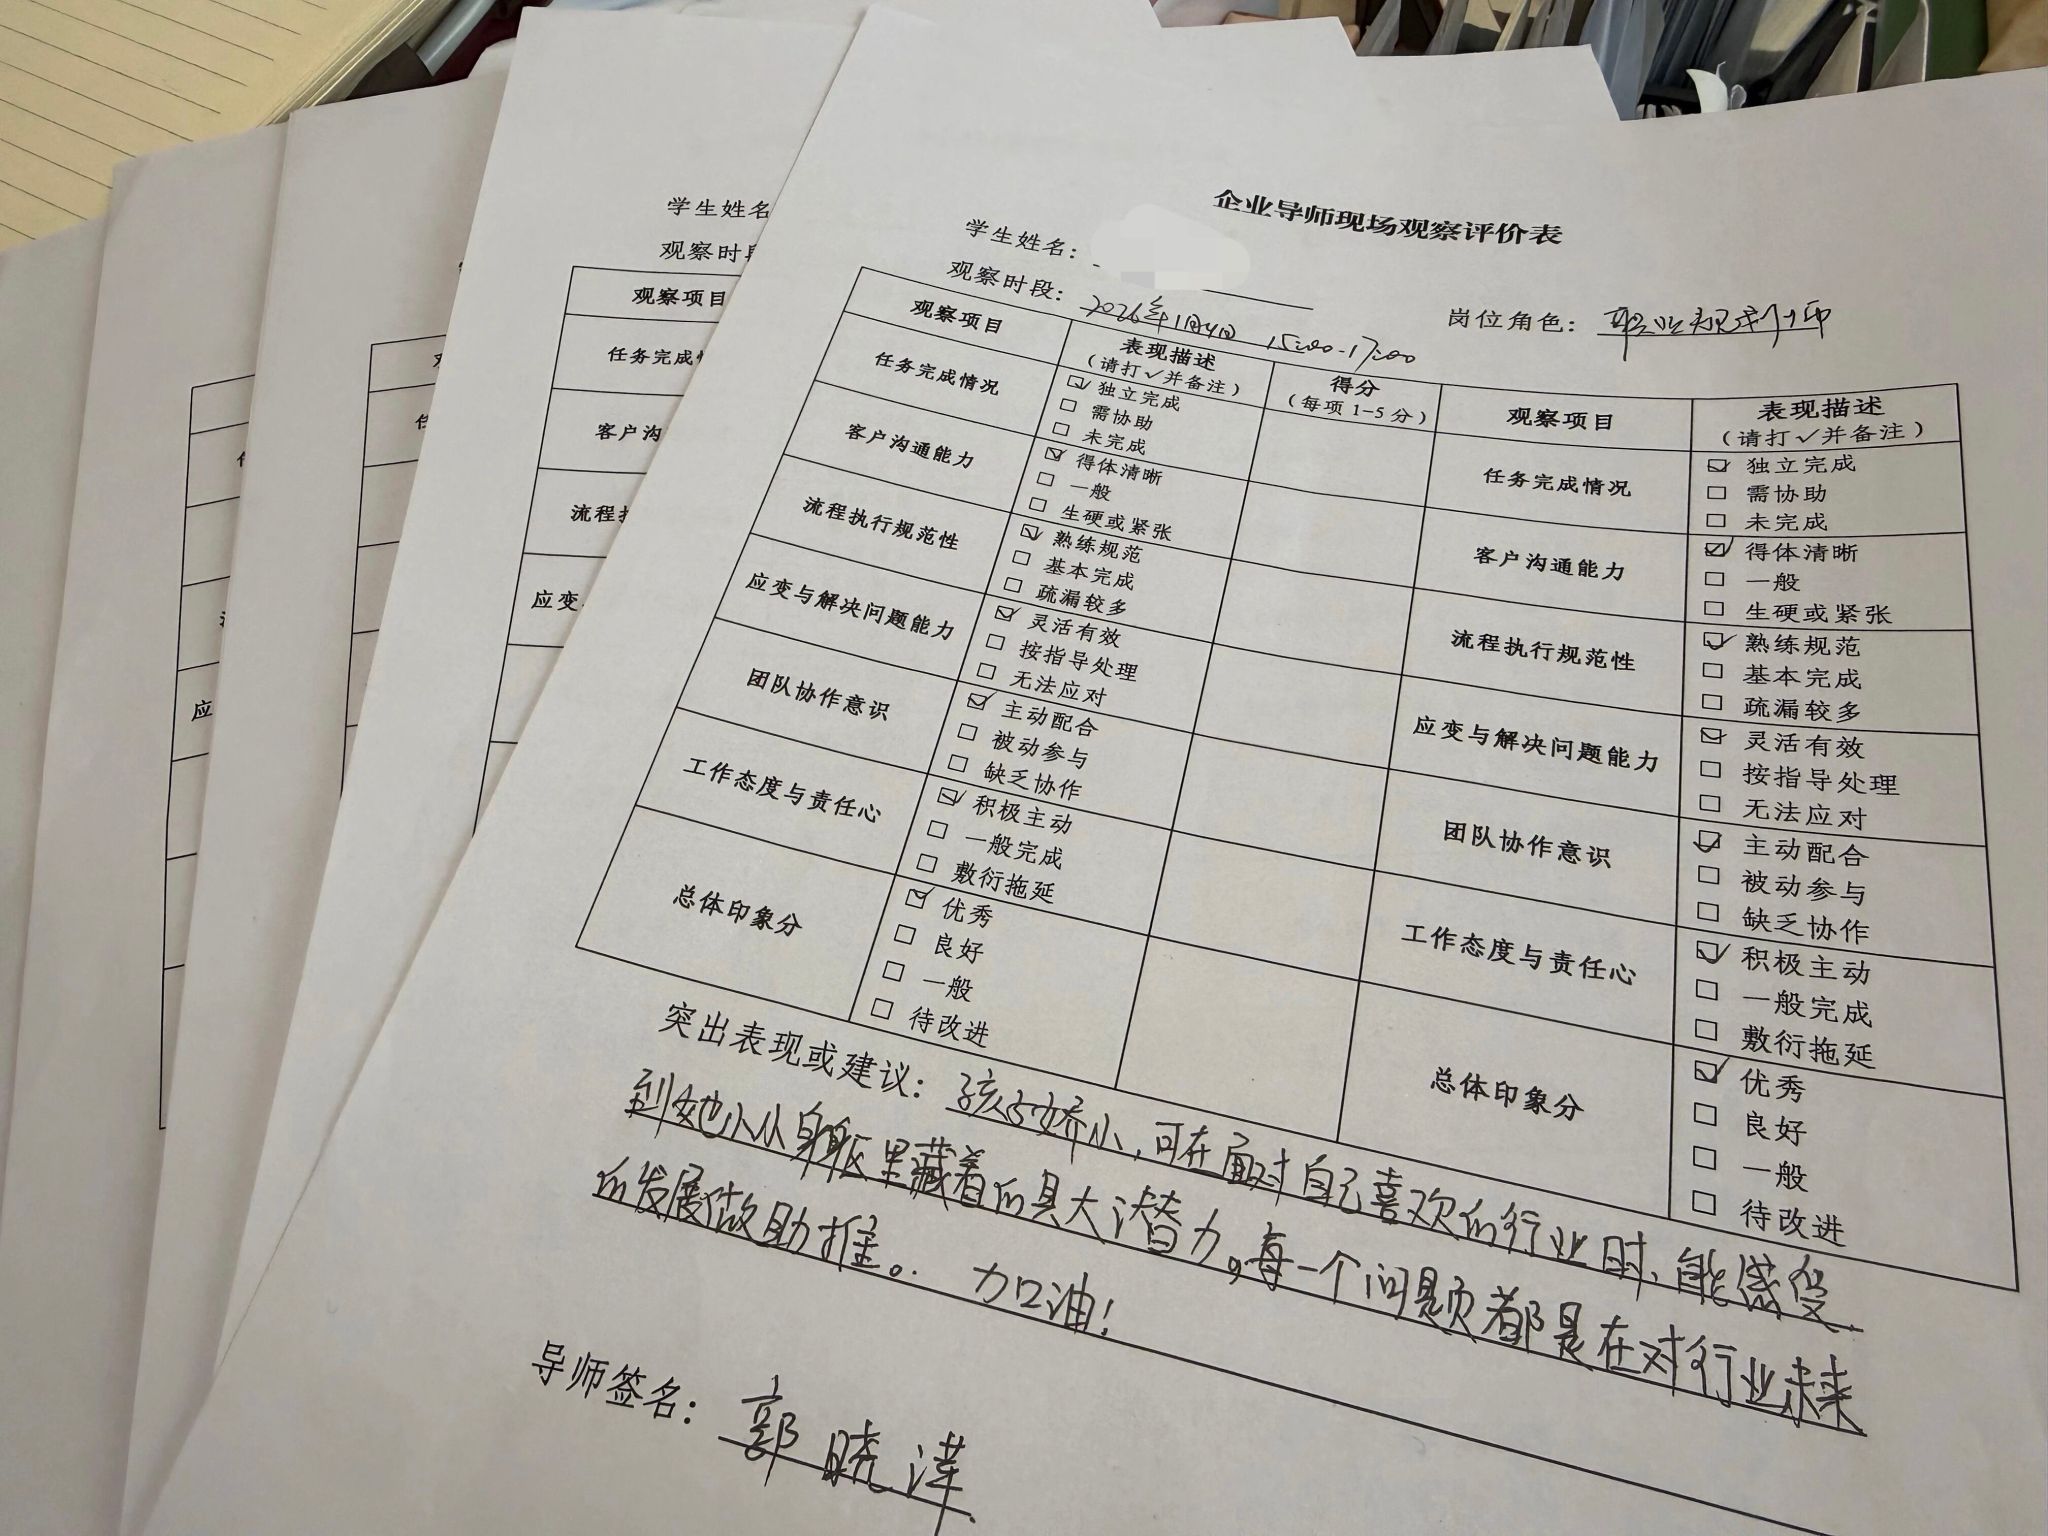 企业导师现场观察评价表
学生姓名：
观察时段：2026年1月4日 15:00-17:00
岗位角色：职业规划师
观察项目 表现描述 得分 观察项目 表现描述
（请打✓并备注） （每项1-5分） （请打✓并备注）
任务完成情况 ☑ 独立完成 任务完成情况 ☑ 独立完成
□ 需协助 □ 需协助
□ 未完成 □ 未完成
客户沟通能力 ☑ 得体清晰 客户沟通能力 ☑ 得体清晰
□ 一般 □ 一般
□ 生硬或紧张 □ 生硬或紧张
流程执行规范性 ☑ 熟练规范 流程执行规范性 ☑ 熟练规范
□ 基本完成 □ 基本完成
□ 疏漏较多 □ 疏漏较多
应变与解决问题能力 ☑ 灵活有效 应变与解决问题能力 ☑ 灵活有效
□ 按指导处理 □ 按指导处理
□ 无法应对 □ 无法应对
团队协作意识 ☑ 主动配合 团队协作意识 ☑ 主动配合
□ 被动参与 □ 被动参与
□ 缺乏协作 □ 缺乏协作
工作态度与责任心 ☑ 积极主动 工作态度与责任心 ☑ 积极主动
□ 一般完成 □ 一般完成
□ 敷衍拖延 □ 敷衍拖延
总体印象分 ☑ 优秀 总体印象分 ☑ 优秀
□ 良好 □ 良好
□ 一般 □ 一般
□ 待改进 □ 待改进
突出表现或建议：孩子娇小，可在面对自己喜欢的行业时，能感受
到她小小身躯里藏着的具大潜力。每一个问题都是在对行业未来
的发展做助推。 加油！
导师签名：郭晓
学生姓名
观察时
观察项目
任务完成
客户沟
流程
应变
应